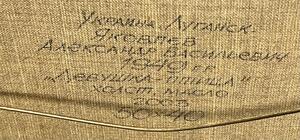 Украина Луганск.
Яковлев
Александр Васильевич
1940 г.
"Девушка-птица"
холст, масло
2003
50×40